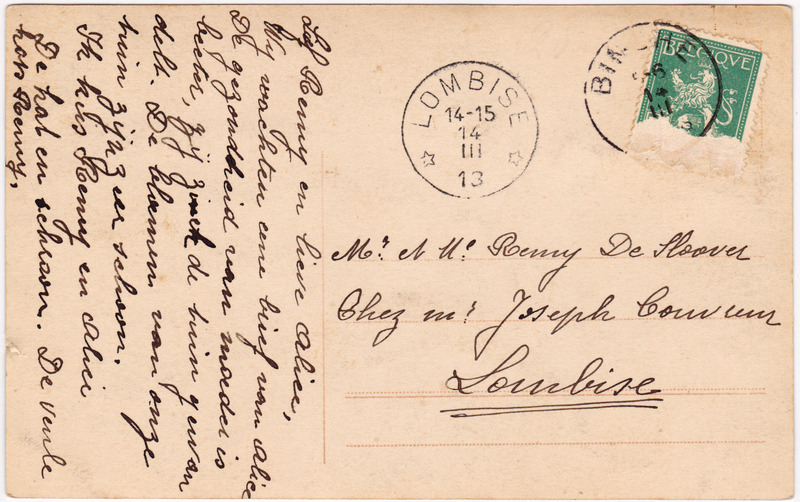 Lief Remy en lieve Alice,
Wy wachten eene brief van Alice
De gezondheid van moeder is
beeter, zij zoekt de tuin
delt. De blomen van onze
tuin zijn zeer schoon.
Ik kus Remy en Alice
De hat en schraow. De Veule
hots Remy,
LOMBISE
14-15
14
III
13
BIN HE
14
III
BELGIQVE
Mr. et Me. Remy De Sloover
Chez mr. Joseph Couvreur
Lombise